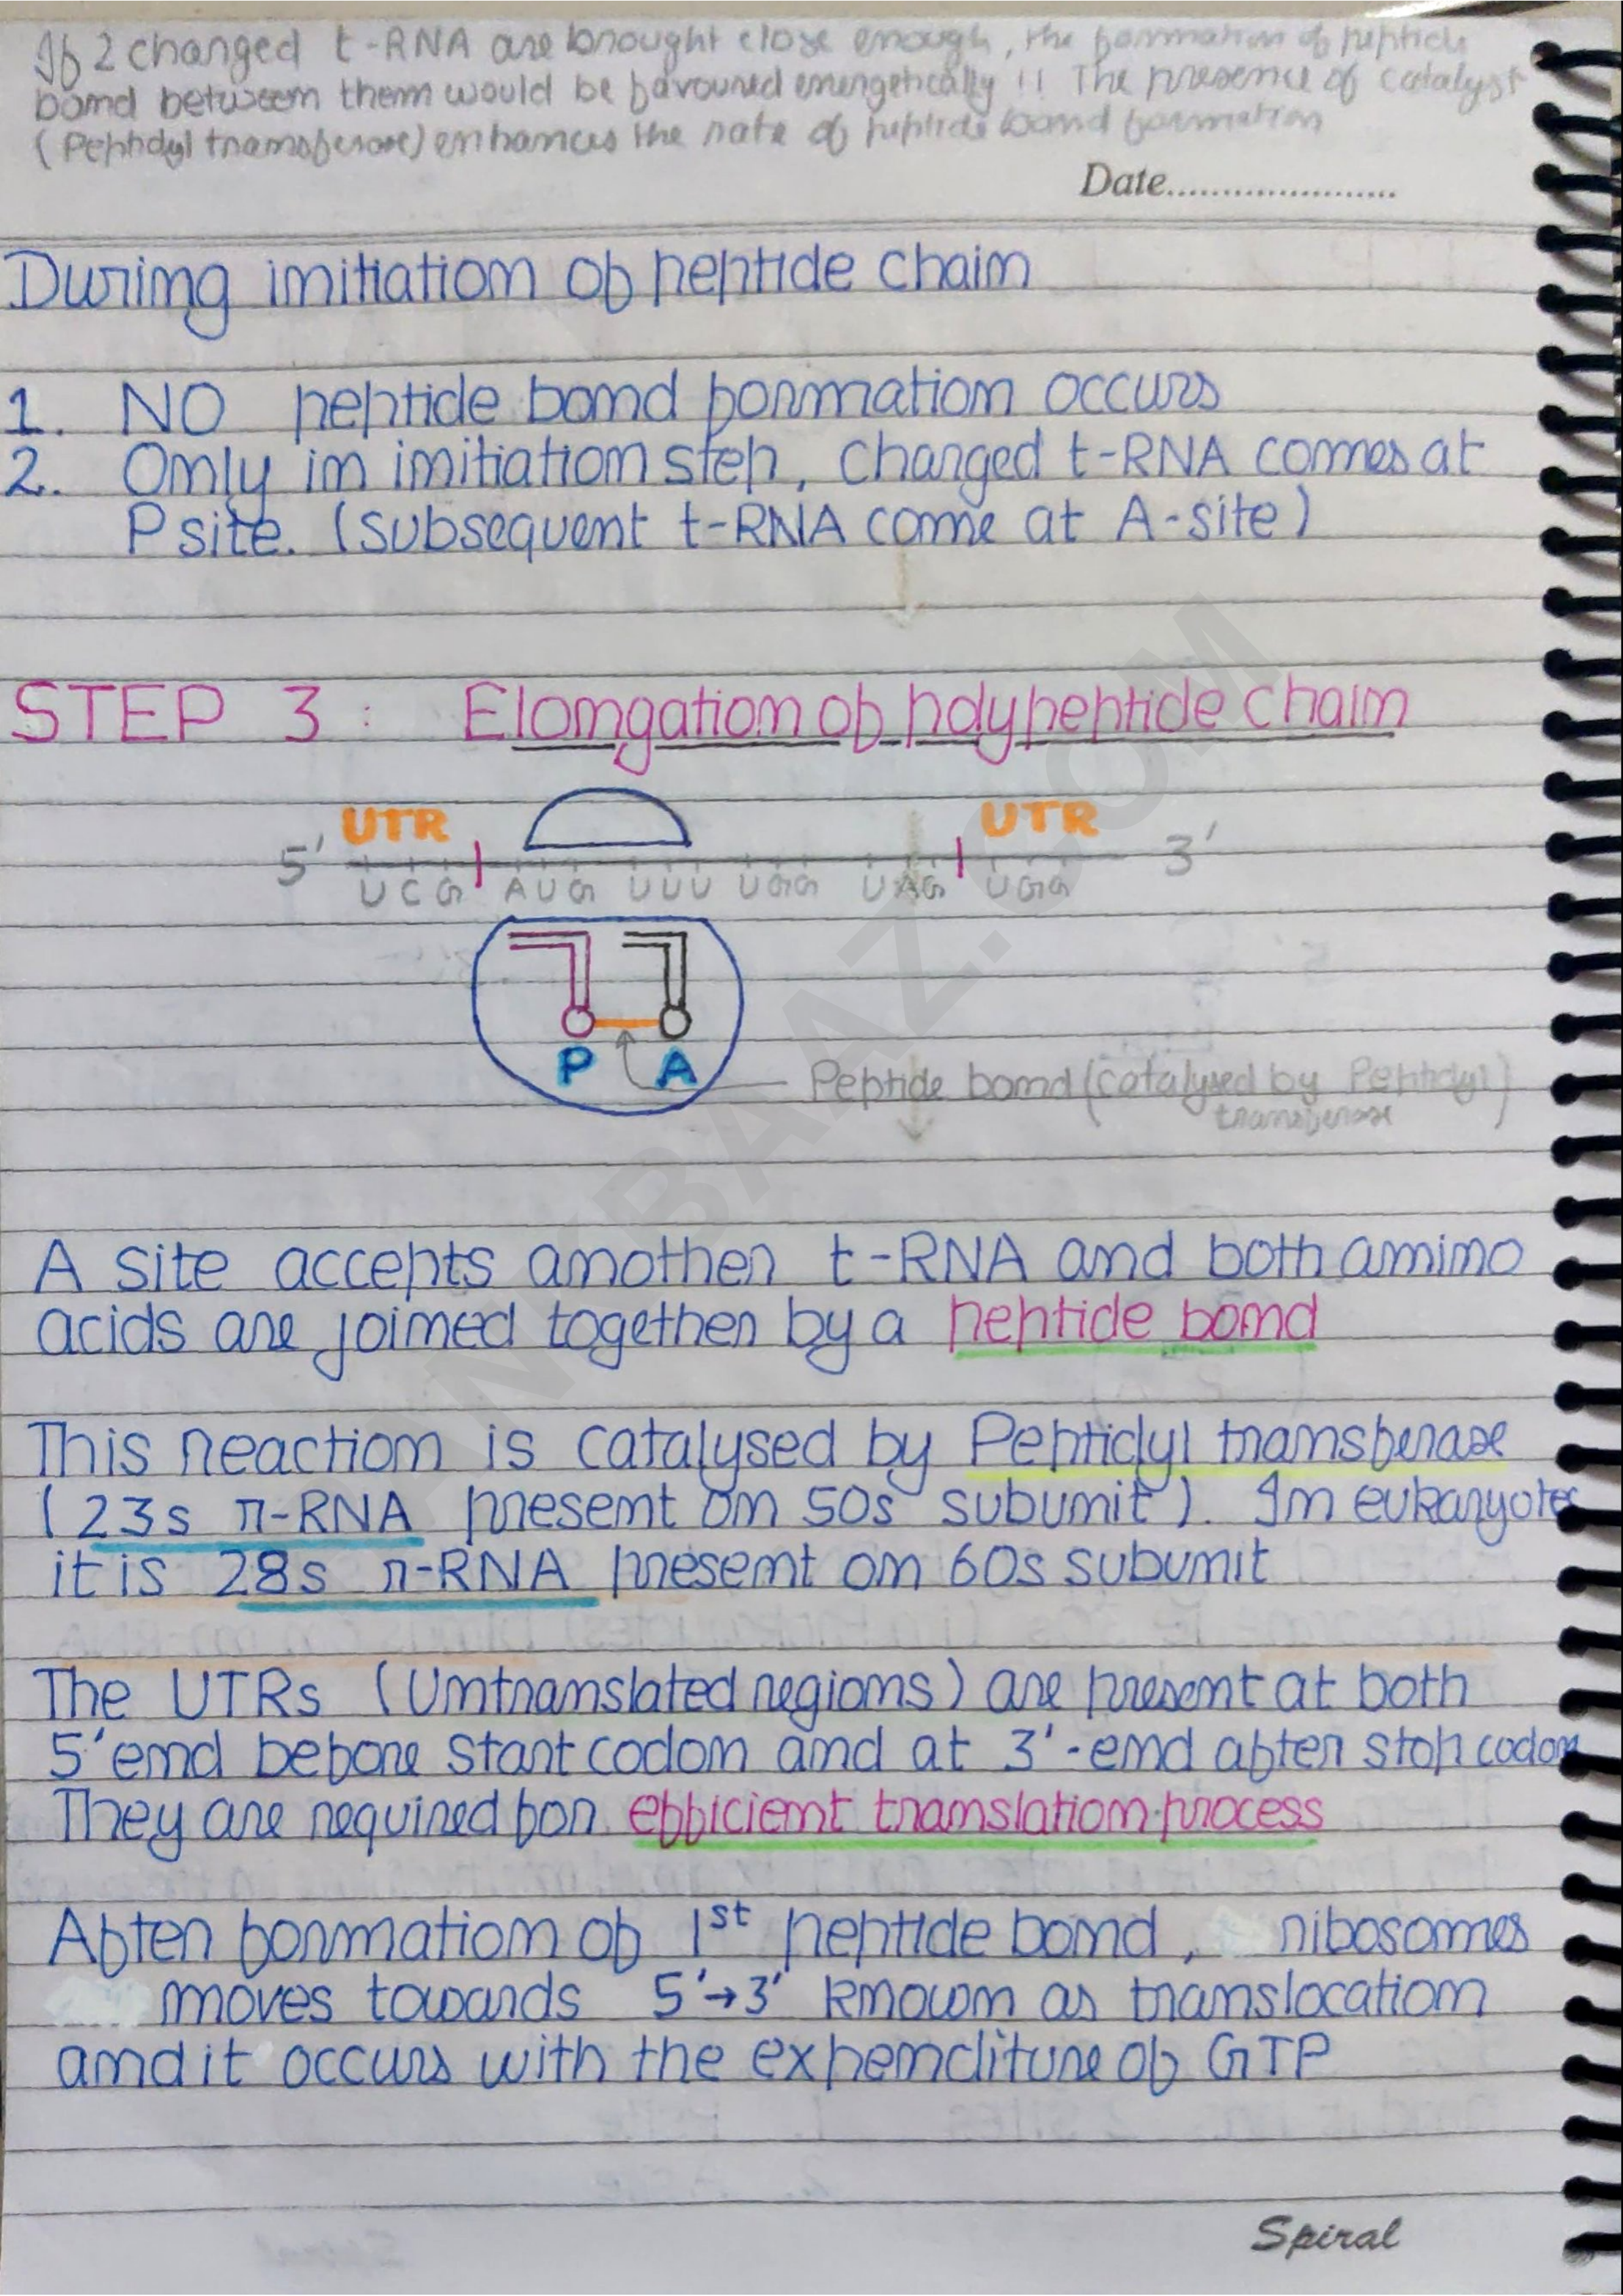 If 2 charged t-RNA are brought close enough, the formation of peptide
bond between them would be favoured energetically !! The presence of catalyst
(Peptidyl transferase) enhances the rate of peptide bond formation
Date......................
During initiation of peptide chain
1. NO peptide bond formation occurs
2. Only in initiation step, charged t-RNA comes at
P site. (subsequent t-RNA come at A-site)
STEP 3 : Elongation of polypeptide chain
UTR UTR
5' 3'
UCG AUG UUU UGG UAG UGG
P A
Peptide bond (catalysed by Peptidyl
transferase)
A site accepts another t-RNA and both amino
acids are joined together by a peptide bond
This reaction is catalysed by Peptidyl transferase
(23s r-RNA present on 50s subunit). In eukaryotes
it is 28s r-RNA present on 60s subunit
The UTRs (Untranslated regions) are present at both
5' end before start codon and at 3'-end after stop codon
They are required for efficient translation process
After formation of 1st peptide bond, ribosomes
moves towards 5'→3' known as translocation
and it occurs with the expenditure of GTP
Spiral
ANKBAAZ.COM